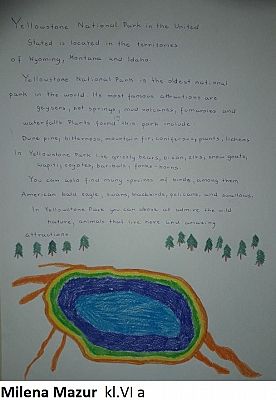 Yellowstone National Park in the United
States is located in the territories
of Wyoming, Montana and Idaho.
Yellowstone National Park is the oldest national
park in the world. Its most famous attractions are
geysers, hot springs, mud volcanos, fumaroles and
waterfalls. Plants found in this park include:
Dune pine, bitterness, mountain fir, coniferous, plants, lichens
In Yellowstone Park live grizzly bears, bison, elks, snow goats,
wapiti, coyotes, baribals, forma-horns.
You can also find many species of birds, among them
American bald eagle, swans, blackbirds, pelicans, and swallows.
In Yellowstone Park you can admire the wild
nature, animals that live here and amazing
attractions.
Milena Mazur kl.VI a